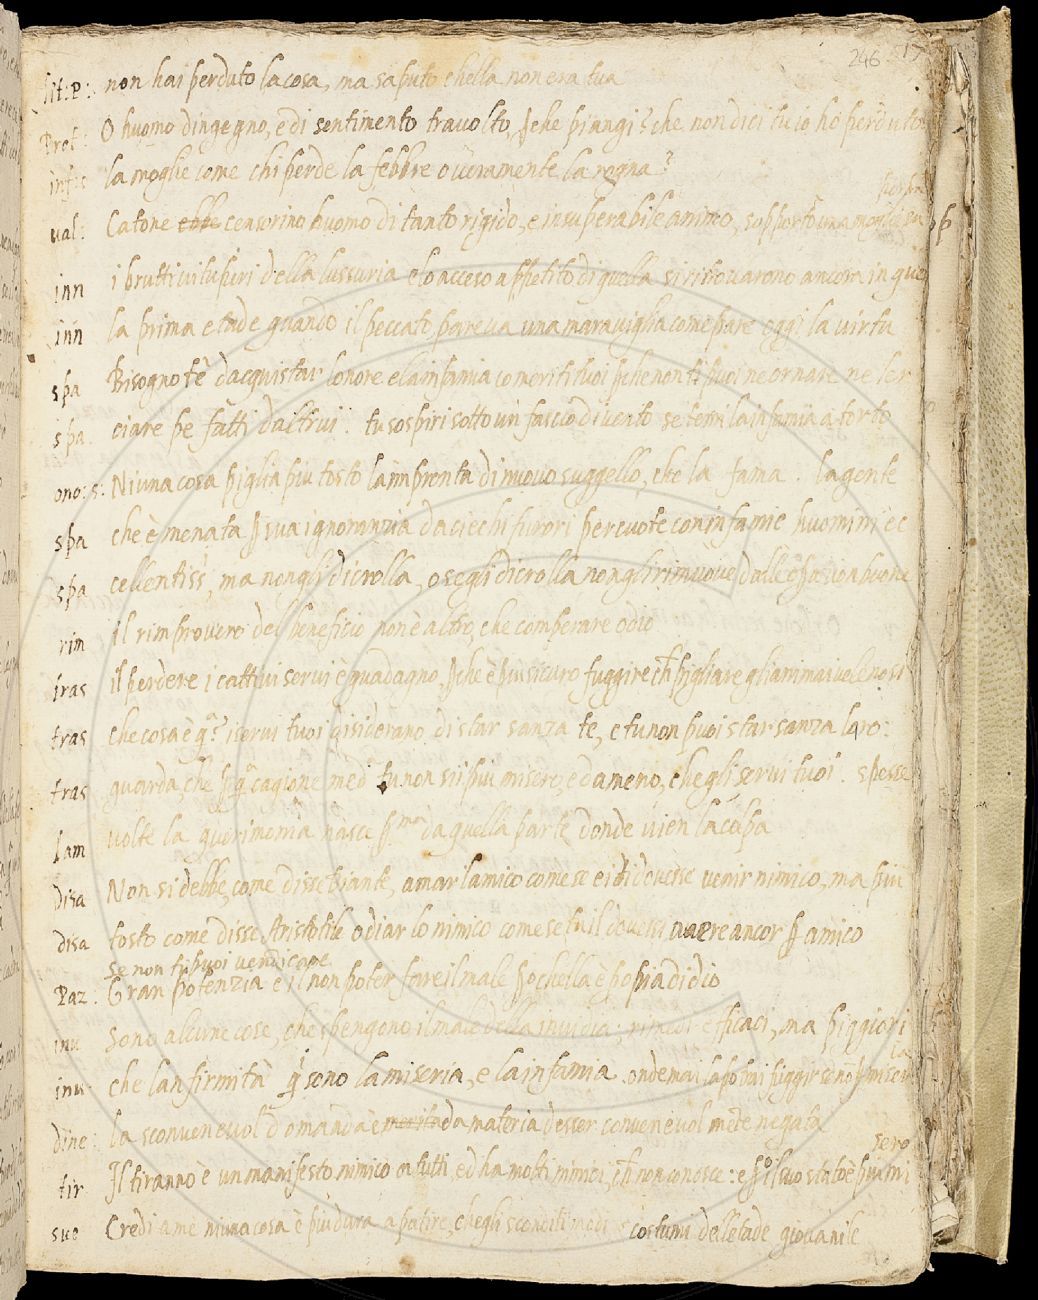 246 17
non hai perduto la cosa, ma saputo chella non era tua
Prot: O huomo dingegno, e di sentimento travolto, ꝑche piangi? che non dici tu io ho perduto
infes la moglie come chi perde la febbre o veramente la rogna?
val: Catone ebbe censorino huomo di tanto rigido, e insuperabile animo, sopportò una moglie
inn i brutti vituperi della lussuria e lo acceso appetito di quella si ritrovarono ancora in que
inn la prima etade quando il peccato pareva una maraviglia come pare oggi la virtu
spa Bisogno tè dacquistar lonore e la infamia co meriti tuoi ꝑche non ti puoi ne ornare ne ler
spa ciare pe fatti daltrui: tu sospiri sotto un fascio di vento se temi la infamia a torto
ono: s: Niuna cosa piglia piu tosto la imprenta di nuovo suggello, che la fama. la gente
spa che è menata ꝑ sua ignoranzia da ciechi furori percuote con infamie huomini ec
spa cellentiss: ma non gli dicrolla, o se gli dicrolla non gli rimuove dalle buone
rim il rimprovero del beneficio non è altro, che comperare odio
iras il perdere i cattivi servi è guadagno, ꝑche è piu sicuro fuggire ch pigliare gli animai velenosi
tras che cosa è qᵃ? i servi tuoi disiderano di star sanza te, e tu non puoi star sanza loro:
tras guarda, che ꝑ qᵃ cagione medᵃ tu non sii piu misero, e da meno, che gli servi tuoi. spesse
lam volte la querimonia nasce pᵐᵃ da quella parte donde vien la colpa
disa Non si debbe, come disse Biante, amar lamico come se ei ti dovesse venir nimico, ma piu
disa tosto come disse Aristotile odiar lo nimico come se tu il dovessi avere ancor ꝑ amico
se non ti puoi vendicare
Paz: Gran potenzia è il non poter fare il male ꝑochella è propia di dio
inv Sono alcune cose, che spengono il male della invidia; rimedi efficaci, ma piggiori
inv che lanfirmità qͥ sono la miseria, e la infamia. onde mai la potrai fuggir se no ꝑ miseria
dine: la sconvenevol domanda è merita da materia desser convenevolmete negata
tir Il tiranno è un manifesto nimico a tutti, ed ha molti nimici, ch non conosce: e ꝑᵒ il suo stato è piu mi
sero
sue Credi a me niuna cosa è piu dura a patire, che gli sconditi modi costumi delletade giovanile